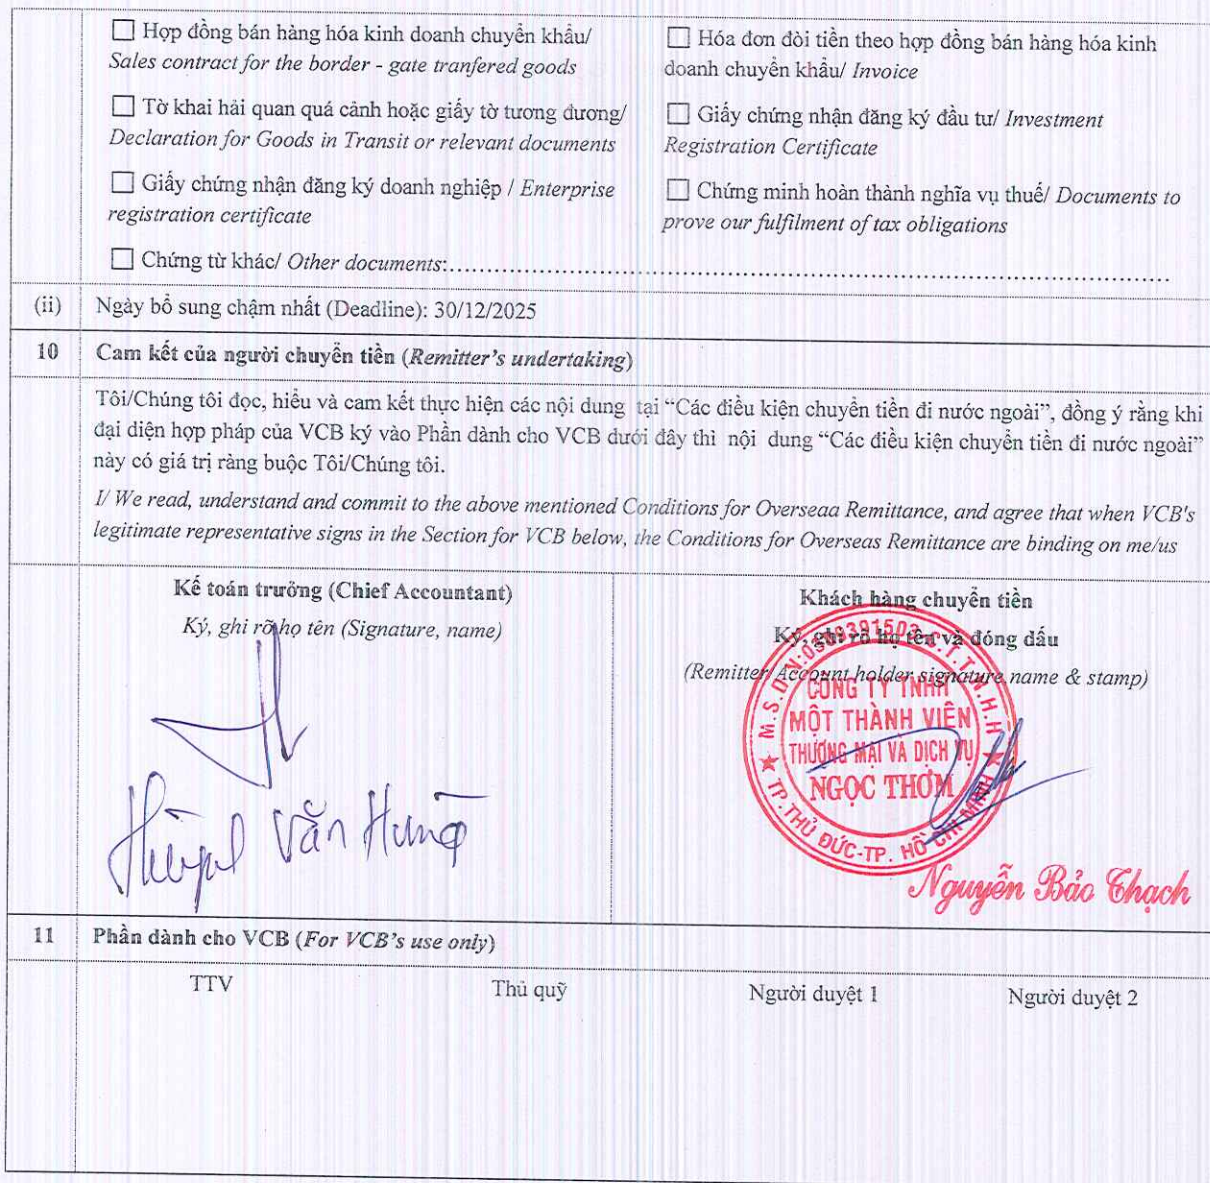 ☐ Hợp đồng bán hàng hóa kinh doanh chuyển khẩu/
Sales contract for the border - gate tranfered goods
☐ Hóa đơn đòi tiền theo hợp đồng bán hàng hóa kinh
doanh chuyển khẩu/ Invoice
☐ Tờ khai hải quan quá cảnh hoặc giấy tờ tương đương/
Declaration for Goods in Transit or relevant documents
☐ Giấy chứng nhận đăng ký đầu tư/ Investment
Registration Certificate
☐ Giấy chứng nhận đăng ký doanh nghiệp / Enterprise
registration certificate
☐ Chứng minh hoàn thành nghĩa vụ thuế/ Documents to
prove our fulfilment of tax obligations
☐ Chứng từ khác/ Other documents:....................
(ii) Ngày bổ sung chậm nhất (Deadline): 30/12/2025
10 Cam kết của người chuyển tiền (Remitter's undertaking)
Tôi/Chúng tôi đọc, hiểu và cam kết thực hiện các nội dung tại “Các điều kiện chuyển tiền đi nước ngoài”, đồng ý rằng khi
đại diện hợp pháp của VCB ký vào Phần dành cho VCB dưới đây thì nội dung “Các điều kiện chuyển tiền đi nước ngoài”
này có giá trị ràng buộc Tôi/Chúng tôi.
I/ We read, understand and commit to the above mentioned Conditions for Overseaa Remittance, and agree that when VCB's
legitimate representative signs in the Section for VCB below, the Conditions for Overseas Remittance are binding on me/us
Kế toán trưởng (Chief Accountant)
Ký, ghi rõ họ tên (Signature, name)
Huỳnh Văn Hưng
Khách hàng chuyển tiền
Ký, ghi rõ họ tên và đóng dấu
(Remitter/Account holder signature, name & stamp)
CÔNG TY TNHH
MỘT THÀNH VIÊN
THƯƠNG MẠI VÀ DỊCH VỤ
NGỌC THƠM
TP. THỦ ĐỨC-TP. HỒ CHÍ MINH
Nguyễn Bảo Thạch
11 Phần dành cho VCB (For VCB's use only)
TTV Thủ quỹ Người duyệt 1 Người duyệt 2